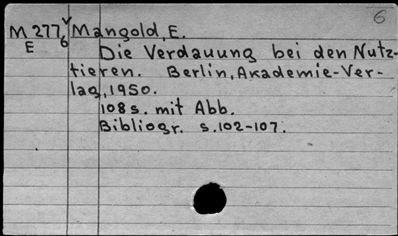 6
M 277 v Mangold, E.
E 6 Die Verdauung bei den Nutz-
tieren. Berlin, Akademie-Ver-
lag, 1950.
108 s. mit Abb.
Bibliogr. s. 102-107.